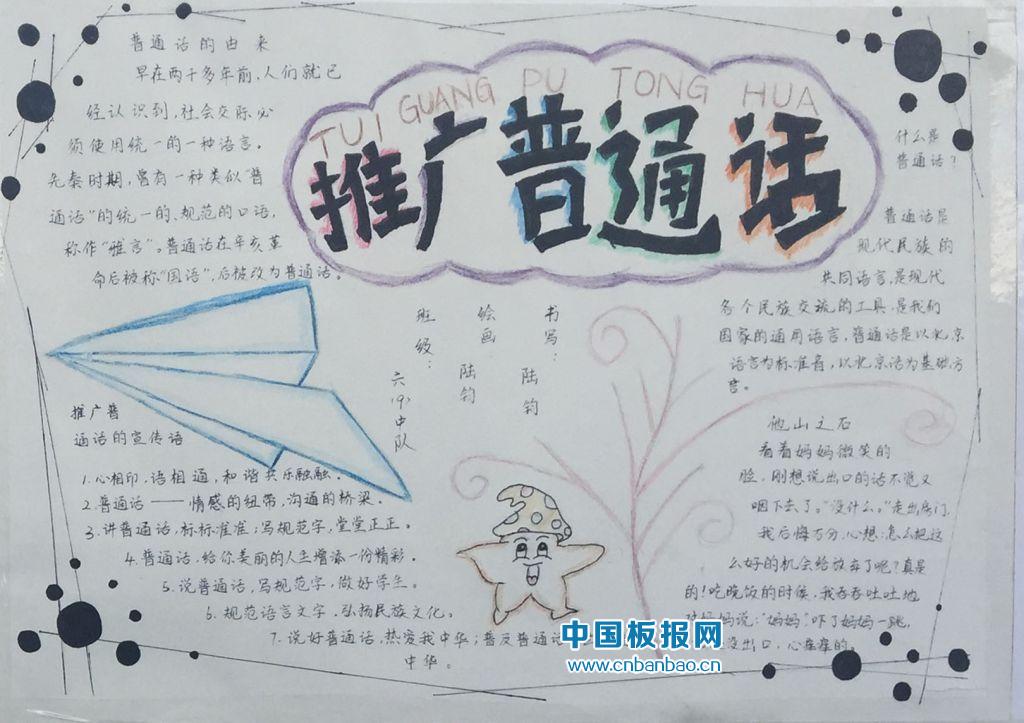 TUI GUANG PU TONG HUA
推广普通话
普通话的由来
早在两千多年前,人们就已
经认识到,社会交际必
须使用统一的一种语言。
先秦时期,曾有一种类似“普
通话”的统一的、规范的口语,
称作“雅言”。普通话在辛亥革
命后被称“国语”,后被改为普通话。
什么是
普通话?
普通话是
现代民族的
共同语言,是现代
各个民族交流的工具,是我们
国家的通用语言,普通话是以北京
语言为标准音,以北京话为基础方
言。
书写:陆钧
绘画 陆钧
班级:六(9)中队
推广普
通话的宣传语
1.心相印,语相通,和谐共乐融融。
2.普通话——情感的纽带,沟通的桥梁。
3.讲普通话,标标准准;写规范字,堂堂正正。
4.普通话,给你美丽的人生增添一份精彩。
5.说普通话,写规范字,做好学生。
6.规范语言文字,弘扬民族文化。
7.说好普通话,热爱我中华;普及普通话
中华。
他山之石
看着妈妈微笑的
脸,刚想说出口的话不觉又
咽下去了。“没什么。”走出房门,
我后悔万分,心想:怎么把这
么好的机会给放弃了呢?真是
的!吃晚饭的时候,我吞吞吐吐地
对妈妈说:“妈妈”吓了妈妈一跳,
没出口,心
中国板报网
www.cnbanbao.cn